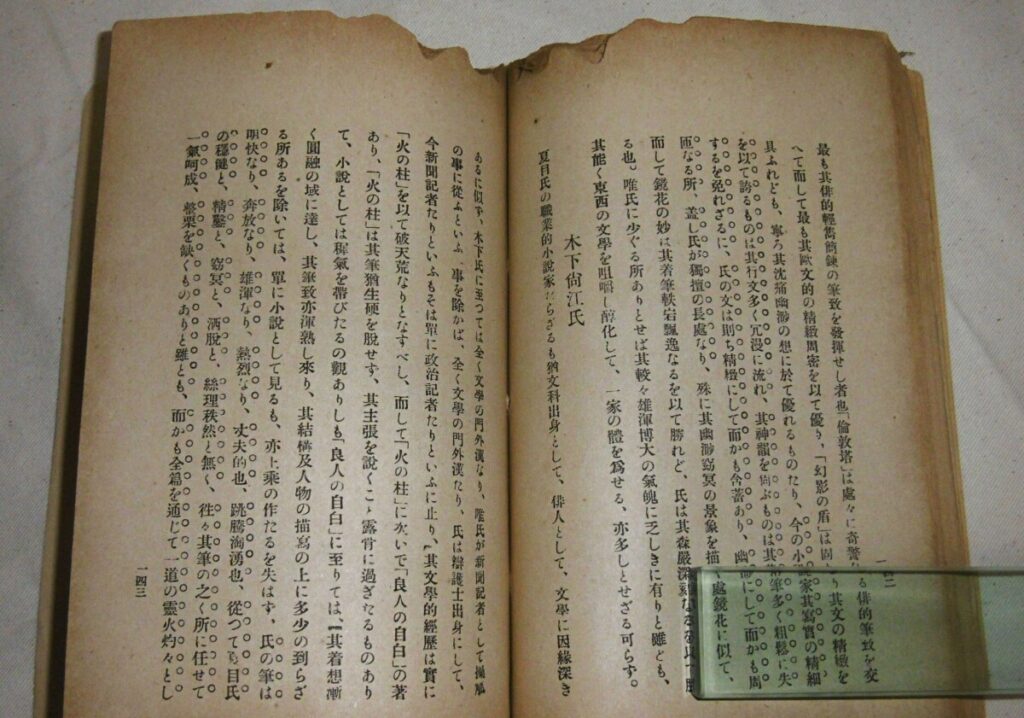 最も其俳的輕雋簡鍊の筆致を發揮せし者也「倫敦塔」は處々に奇警なる俳的筆致を交
へて而して最も其歐文的の精緻周密を以て優り、「幻影の盾」は固より其文の精緻を
具ふれども、寧ろ其沈痛幽渺の想に於て優れるものたり、今の小説家其寫實の精細
を以て誇るものは其行文多く冗漫に流れ、其神韻を尚ぶものは其筆多く粗鬆に失
するを免れざるに、氏の文は則ち精緻にして而かも含蓄あり、幽渺にして而かも周
匝なる所、蓋し氏が獨擅の長處なり、殊に其幽渺窈冥の景象を描く處鏡花に似て、
而して鏡花の妙は其着筆軼宕飄逸なるを以て勝れど、氏は其森嚴深
る也。唯氏に少ぐる所ありとせば其較々雄渾博大の氣魄に乏しきに有りと雖ども、
其能く東西の文學を咀嚼し醇化して、一家の體を爲せる、亦多しとせざる可らず。
木下尙江氏
夏目氏の職業的小說家にらざるも猶文科出身として、俳人として、文學に因緣深き
あるに似ず、木下氏に至つては全く文學の門外漢なり、唯氏が新聞記者として操觚
の事に從ふといふ一事を除かば、全く文學の門外漢たり、氏は辯護士出身にして、
今新聞記者たりといふもそは單に政治記者たりといふに止り、其文學的經歷は實に
「火の柱」を以て破天荒なりとなすべし、而して「火の柱」に次いで「良人の自白」の著
あり、「火の柱」は其筆猶生硬を脫せず、其主張を說くこと露骨に過ぎたるものあり
て、小說としては稚氣を帶びたるの觀ありしも「良人の自白」に至りては、其着想漸
く圓融の域に達し、其筆致亦渾熟し來り、其結構及人物の描寫の上に多少の到らざ
る所あるを除いては、單に小說として見るも、亦上乘の作たるを失はず、氏の筆は
明快なり、奔放なり、雄渾なり、熱烈なり、丈夫的也、跳騰洶湧也、從つて夏目氏
の穩健と、精鑿と、窈冥と、洒脫と、絲理秩然と無く、徃々其筆の之く所に任せて
一氣呵成、整栗を缺くものありと雖とも、而かも全篇を通じて一道の靈火灼々とし
一四三